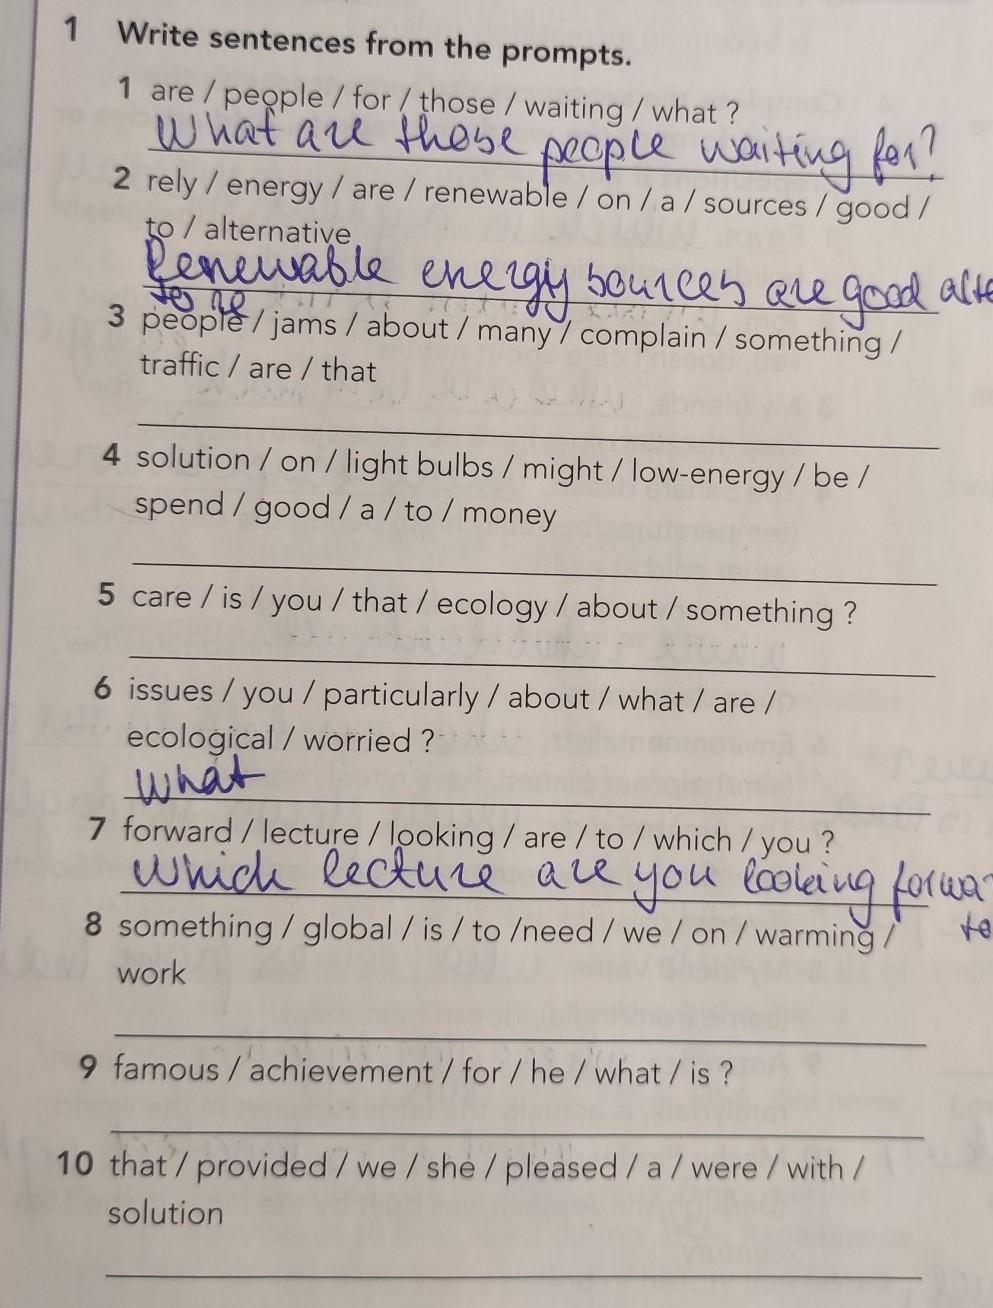 1 Write sentences from the prompts.
1 are / people / for / those / waiting / what ?
What are those people waiting for?
2 rely / energy / are / renewable / on / a / sources / good /
to / alternative
Renewable energy sources are good alte
to re
3 people / jams / about / many / complain / something /
traffic / are / that
4 solution / on / light bulbs / might / low-energy / be /
spend / good / a / to / money
5 care / is / you / that / ecology / about / something ?
6 issues / you / particularly / about / what / are /
ecological / worried ?
What
7 forward / lecture / looking / are / to / which / you ?
Which lecture are you looking forwa
to
8 something / global / is / to /need / we / on / warming /
work
9 famous / achievement / for / he / what / is ?
10 that / provided / we / she / pleased / a / were / with /
solution